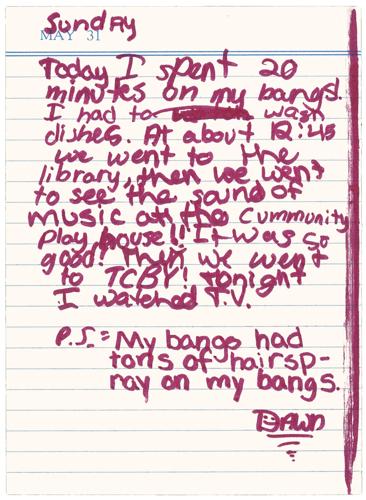 Sunday
MAY 31
Today I spent 20
minutes on my bangs.
I had to wash
dishes. At about 12:45
we went to the
library, then we went
to see the sound of
music at the Cummunity
Play house!! It was so
good! Then we went
to TCBY! tonight
I watched T.V.
P.S.= My bangs had
tons of hairsp-
ray on my bangs.
DAWN